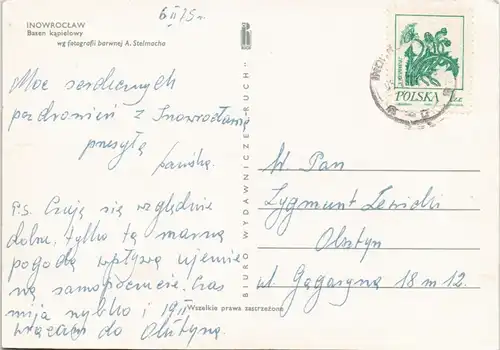 INOWROCŁAW
Basen kąpielowy
wg fotografii barwnej A. Stelmacha
6 II 75 r.
Moc serdecznych
pozdrowień z Inowrocławia
przesyła
P.S. Czuję się względnie
dobrze, tylko ta marna
pogoda wpływa ujemnie
na samopoczucie. Czas
mija szybko i 19 II
wracam do Olsztyna.
BIURO WYDAWNICZE „RUCH”
Wszelkie prawa zastrzeżone
POLSKA
W Pan
Zygmunt Lewicki
Olsztyn
ul. Gagaryna 18 m 12.